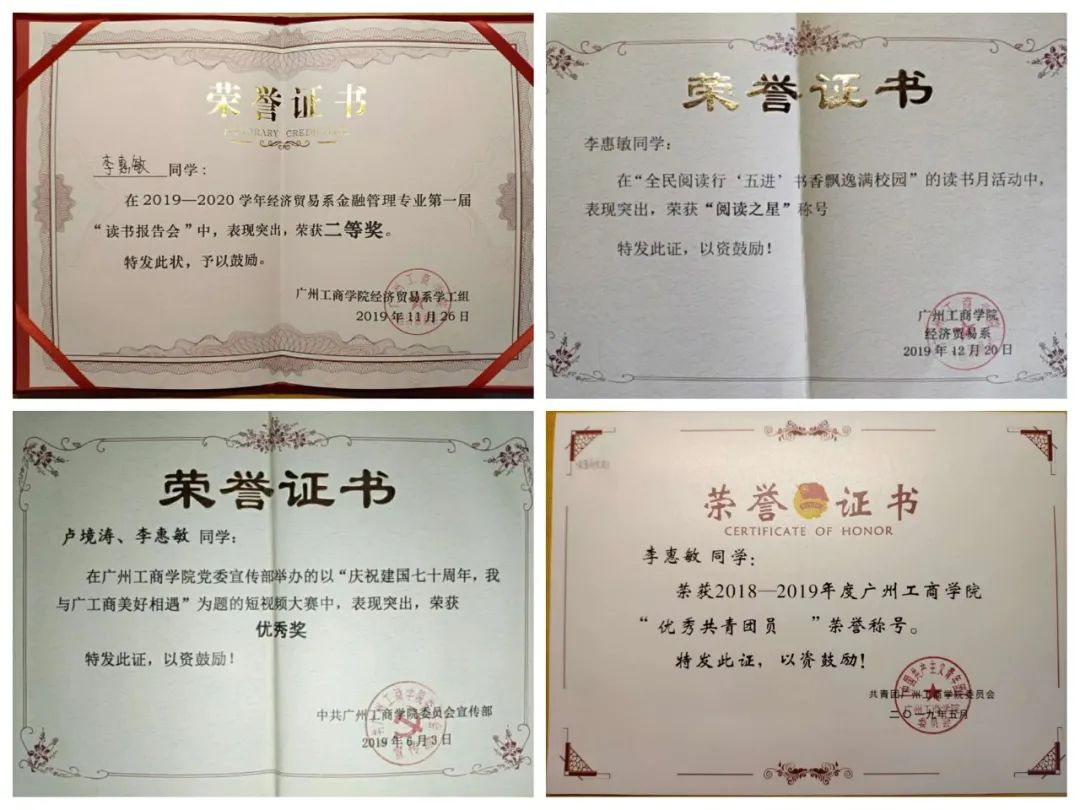 荣誉证书
李惠敏 同学：
在2019—2020学年经济贸易系金融管理专业第一届
“读书报告会”中，表现突出，荣获二等奖。
特发此状，予以鼓励。
广州工商学院经济贸易系学工组
2019年11月26日
荣誉证书
李惠敏同学：
在“全民阅读行‘五进’书香飘逸满校园”的读书月活动中，
表现突出，荣获“阅读之星”称号
特发此证，以资鼓励！
广州工商学院
经济贸易系
2019年12月20日
荣誉证书
卢境涛、李惠敏 同学：
在广州工商学院党委宣传部举办的以“庆祝建国七十周年，我
与广工商美好相遇”为题的短视频大赛中，表现突出，荣获
优秀奖
特发此证，以资鼓励！
中共广州工商学院委员会宣传部
2019年6月3日
荣誉证书
CERTIFICATE OF HONOR
李惠敏 同学：
荣获2018—2019年度广州工商学院
“优秀共青团员 ”荣誉称号。
特发此证，以资鼓励！
共青团广州工商学院委员会
二〇一九年五月